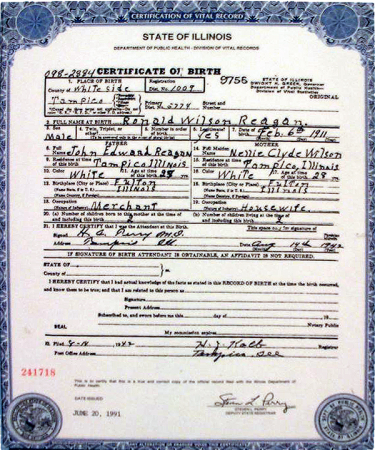 CERTIFICATION OF VITAL RECORD
STATE OF ILLINOIS
DEPARTMENT OF PUBLIC HEALTH - DIVISION OF VITAL RECORDS
098-2884 CERTIFICATE OF BIRTH 9756 STATE OF ILLINOIS
DWIGHT H. GREEN, Governor
1. PLACE OF BIRTH Registration Department of Public Health
County of Whiteside Dist. No. 1009 Division of Vital Statistics
ORIGINAL
Tampico Primary Dist. No. Street and Number
2. FULL NAME AT BIRTH Ronald Wilson Reagan
3. Sex Male 4. Twin, Triplet, or other? 5. Number in order of birth 6. Legitimate? Yes 7. Date of Birth Feb. 6th 1911
FATHER MOTHER
8. Full Name John Edward Reagan Full Maiden Name Nellie Clyde Wilson
9. Residence at time of birth Tampico Illinois Residence at time of birth Tampico, Illinois
10. Color White Color White
12. Birthplace (City or Place) Fulton Illinois Birthplace (City or Place) Fulton Illinois
Occupation Merchant Occupation Housewife
20. (a) Number of children born to this mother at the time of and including this birth 2 (b) Number of children living at the time of and including this birth 2
I HEREBY CERTIFY that I attended the birth of the above child This space only for signature of
Signed H. A. Terry M.D.
Address Tampico Ill Date Aug 1942
IF SIGNATURE OF BIRTH ATTENDANT IS OBTAINABLE, AN AFFIDAVIT IS NOT REQUIRED.
STATE OF
County of
I HEREBY CERTIFY that I had actual knowledge of the facts as stated in this RECORD OF BIRTH at the time the birth occurred,
and know them to be true; and that I am related to this person as
Signature
Present Address
Subscribed to, and sworn before me this day of 19
SEAL Notary Public
My commission expires
Filed 8-16 1942 Registrar
Post Office Address Tampico
241718
This is to certify that this is a true and correct copy of the official record filed with the Illinois Department of
Public Health.
DATE ISSUED
JUNE 20, 1991
STEVEN L. PERRY
DEPUTY STATE REGISTRAR
ANY ALTERATION OR ERASURE VOIDS THIS CERTIFICATE